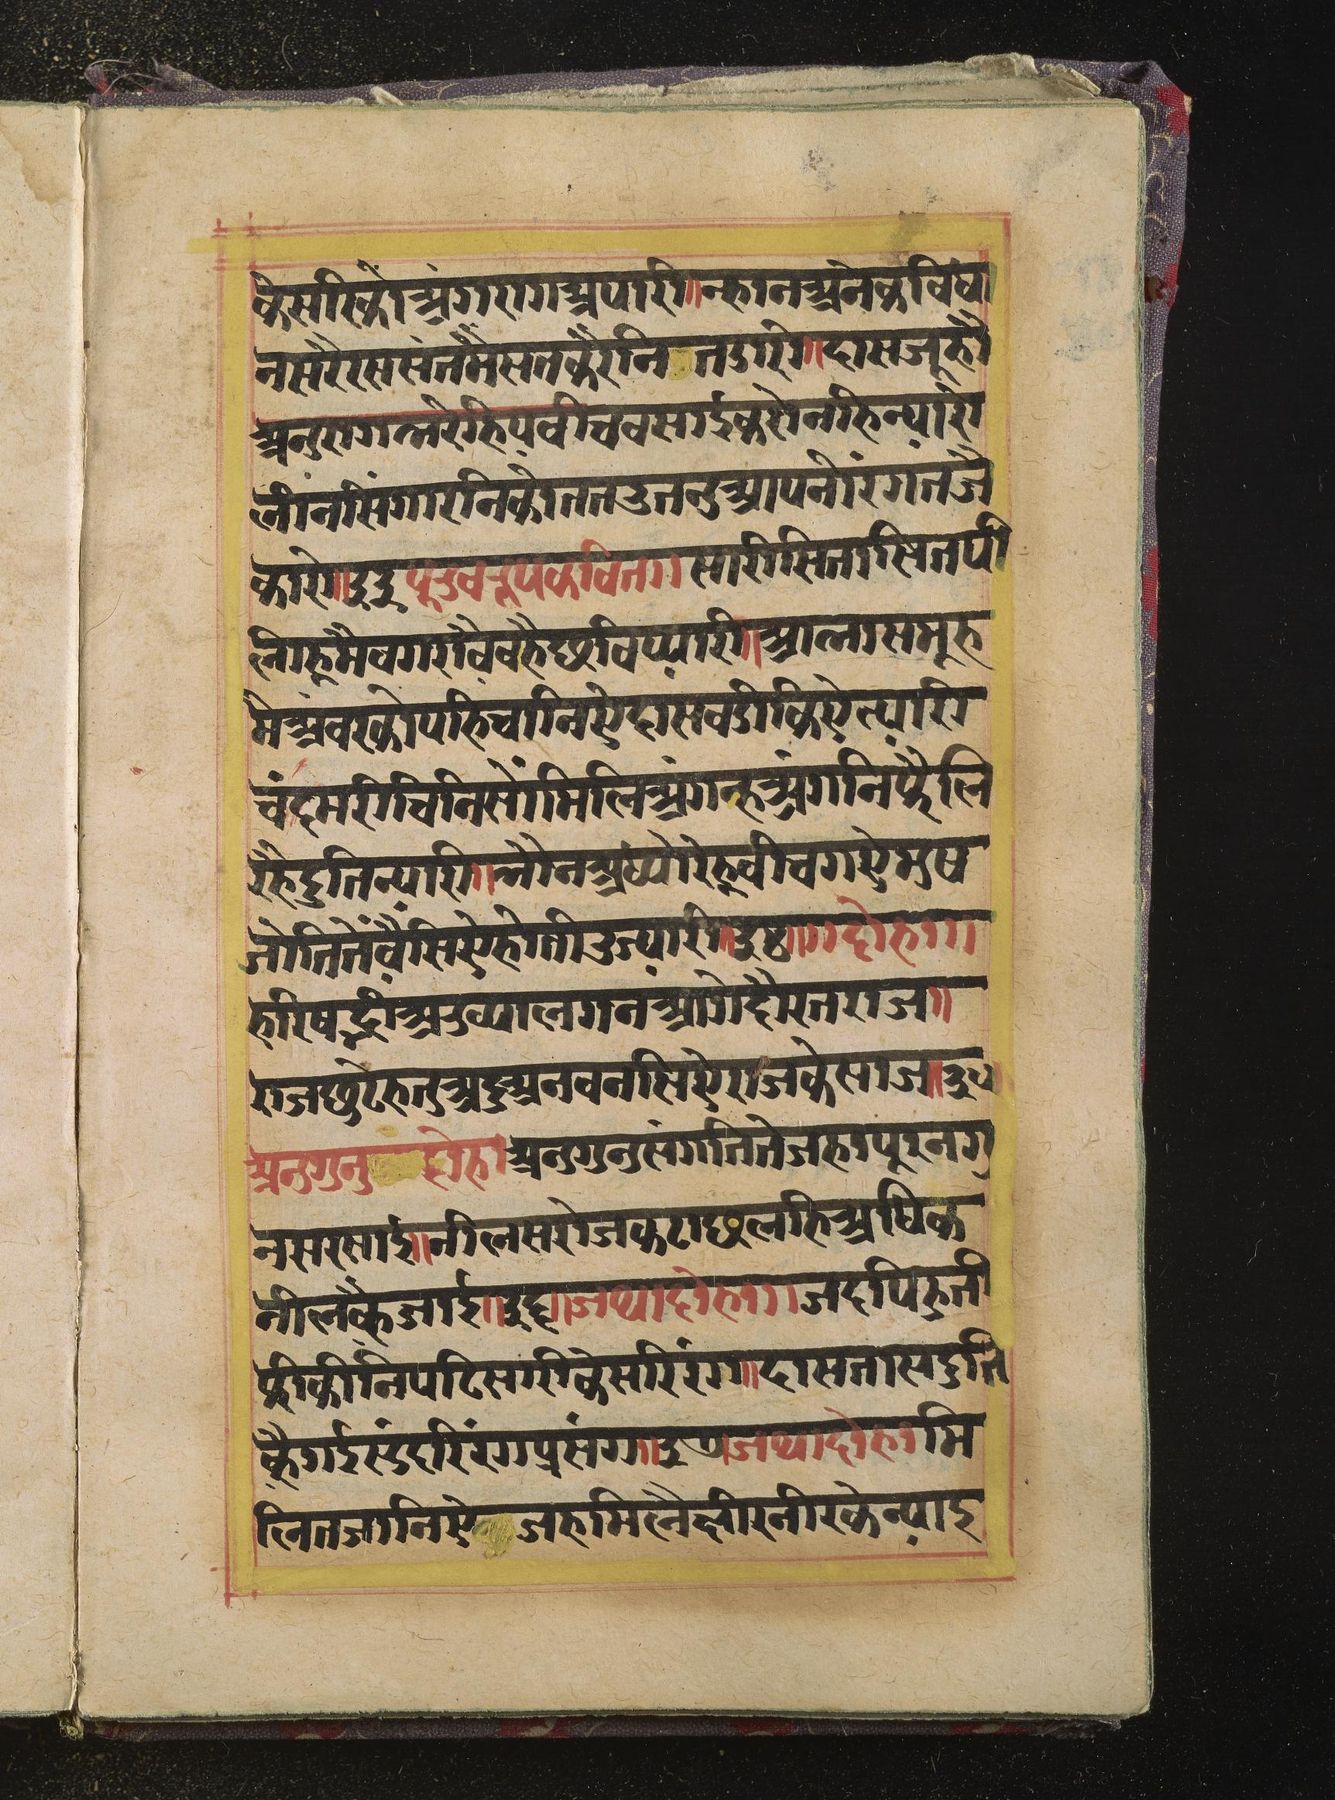 केसरिको अंगराग अपारी॥ न्हान अनेक विधा
न सरै रस संत मै सत करै नि तडारि॥ दास जू हौ
अनुराग भरे हिय वीच वसाई करो नहि न्यारो
लीन सिंगारनि को तत उ तनु आपनो रंग तजै
कारो॥ ३३ पूर्वरूप कवित॥ सारी सितासित पी
ली हू मै वगरावै वहै छवि प्यारी॥ आला समूह
मै अंवर को पहिचानिऐ दास वडी किऐ त्यारी
चंद मरीचिनि सों मिलि अंगन्ह अंगनि फैलि
रहै दुति न्यारी॥ भौन अंध्यारेहू वीच गऐ मुष
जोति तें वैसिऐ होती उज्यारी॥ ३४॥ दोहा॥
हरि षड्गी अउ व्याल गन आगे दौरत राज॥
राज छुटेहु तुअ दुअन वन सिऐ राज के साज॥ ३५
अनुगुनु दोहा अनुगुनु संगति ते जहा पूरन गु
न सरसाई॥ नील सरोज कटाछ लहि अधिक
नील ह्वै जाई॥ ३६॥ जथा दोहा॥ जदपि हुती
फीकी निपटि सगरी केसरि रंग॥ दास तास दुति
ह्वै गई सुंदरि रंग प्रसंग॥ ३७ जथा दोहा मि
लित जानिऐ जह मिलै छीर नीर के न्याइ